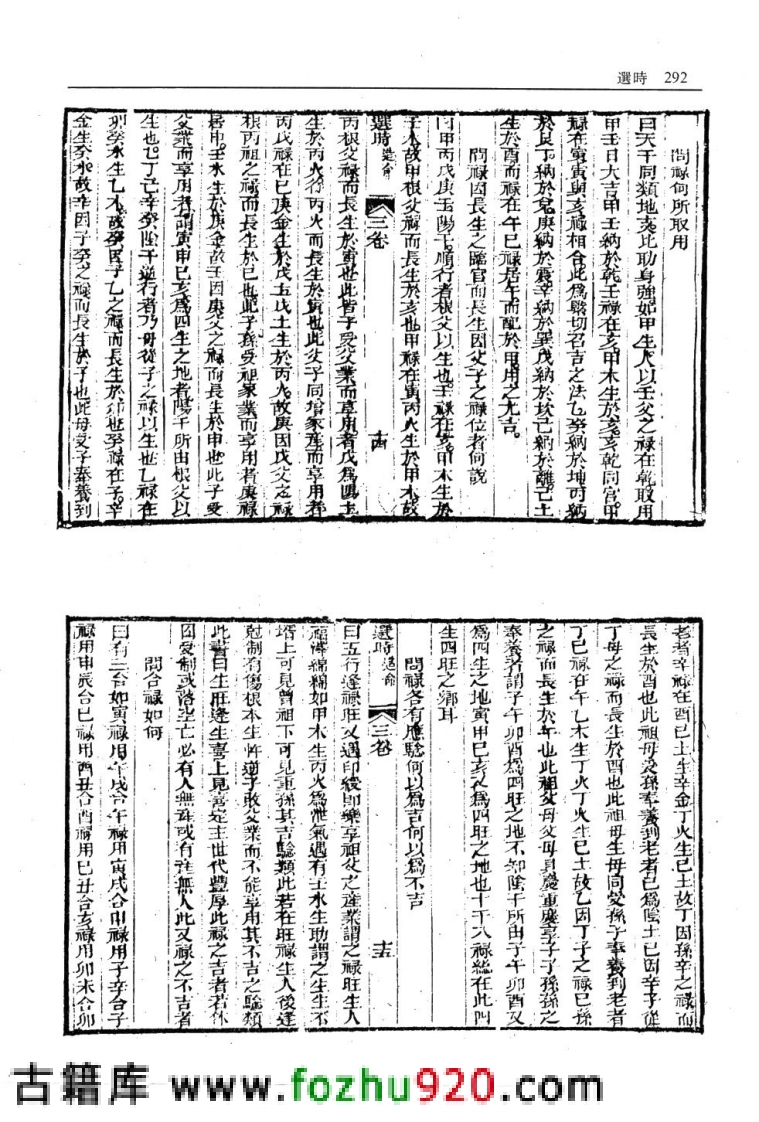 選時 292
問祿何所取用
曰天干同類地支比助身強如甲生人以壬父之祿在乾取用
甲壬日大吉甲壬納於乾壬祿在亥甲木生於亥亥乾同宮甲
祿在寅寅與亥祿相合此爲聯切召吉之法乙癸納於坤丙納
於艮丁納於兌庚納於震辛納於巽戊納於坎己納於離己土
生於酉而祿在午巳祿居午而配於甲用之尤吉
問祿因長生之臨官而長生因父子之祿位者何說
曰甲丙戊庚壬陽干順行者根父以生也壬祿在亥甲木生於
子水故甲根父祿而長生於亥也甲祿在寅丙火生於甲木故
選時 三卷 十四
丙根父祿而長生於寅也此皆子受父業而享用者戊爲陽土
生於丙火從丙火而長生於寅也此父子同增家產而享用者
丙戊祿在巳庚金生於戊五戊土生於丙火故庚因戊父之祿
根丙祖之祿而長生於巳也此子孫受祖家業而享用者庚祿
居申壬水生於庚金故壬因庚父之祿而長生於申也此子受
父業而享用者謂寅申巳亥爲四生之地者陽干所由根父以
生也乙丁己辛癸陰干逆行者乃母從子之祿以生也乙祿在
卯癸水生乙木故癸因子乙之祿而長生於卯也癸祿在子辛
金生癸水故辛因子癸之祿而長生於子也此母受子奉養到
老者辛祿在酉己土生辛金丁火生己土故丁因孫辛之祿而
長生於酉也此祖母受孫奉養到老者己爲陰土己因辛子從
丁母之祿而長生於酉也此祖母生母同受孫子奉養到老者
丁己祿在午乙木生丁火丁火生己土故乙因丁子之祿己孫
之祿而長生於午也此祖父母父母具慶重慶享子子孫孫之
奉養者謂子午卯酉爲四旺之地不知陰干所由子午卯酉又
爲四生之地寅申巳亥又爲四旺之地也十干八祿總在此四
生四旺之鄉耳
問祿各有應驗何以爲吉何以爲不吉
選時 三卷 十五
曰五行逢祿旺又遇印綬即樂享祖父之產業謂之祿旺生人
福澤綿綿如甲木生丙火爲泄氣遇有壬水生助謂之生生不
壻上可見曾祖下可見重孫其吉驗類此若在旺祿生人後逢
尅制有傷根本生忤逆子敗父業而不能享用其不吉之驗類
此書曰生旺逢生喜上見當定主世代豐厚此祿之吉者若休
囚受制或落空亡必有人無祿或有祿無人此又祿之不吉者
問合祿如何
曰有三合如寅祿用午戌合午祿用寅戌合申祿用子辛合子
祿用申辰合巳祿用酉丑合酉祿用巳丑合亥祿用卯未合卯
古籍库 www.fozhu920.com